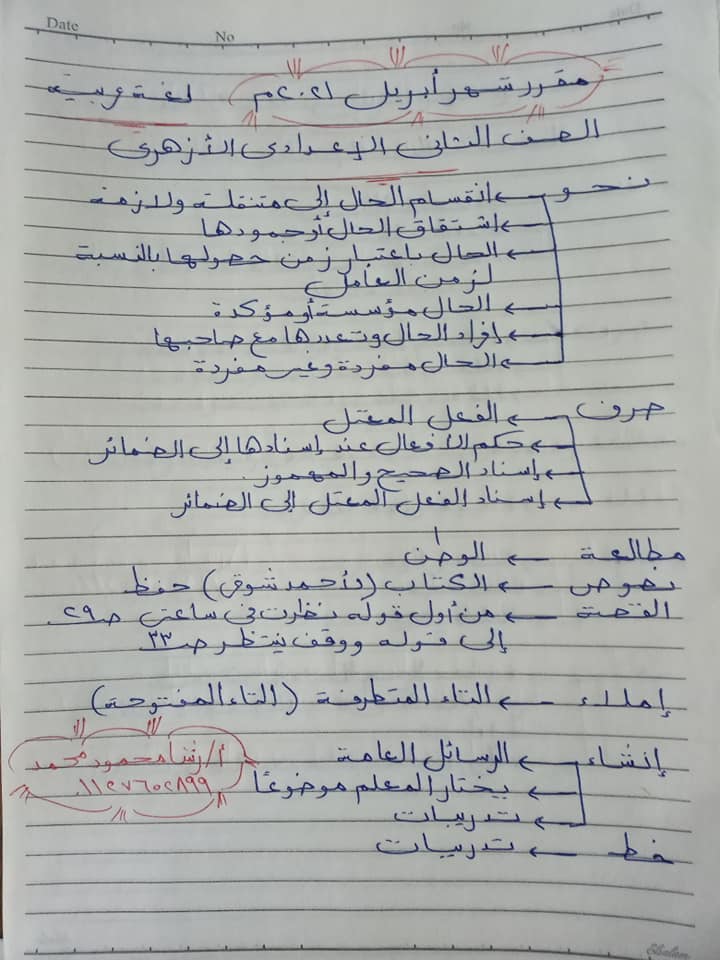 Date
No
مقرر شهر أبريل ٢٠٢١م لغة عربية
الصف الثانى الإعدادى الأزهرى
نحو ← انقسام الحال إلى متنقلة ولازمة
← اشتقاق الحال أو جمودها
← الحال باعتبار زمن حصولها بالنسبة
لزمن العامل
← الحال مؤسسة أو مؤكدة
← إفراد الحال وتعددها مع صاحبها
← الحال مفردة وغير مفردة
صرف ← الفعل المعتل
← حكم الأفعال عند إسنادها إلى الضمائر
← إسناد الصحيح والمهموز
← إسناد الفعل المعتل إلى الضمائر
مطالعة ← الوطن
نصوص ← الكتاب (لأحمد شوقى) حفظ
القصة ← من أول قوله نظرت في ساعتى صـ٢٩
إلى قوله ووقف ينتظر صـ٣٣
إملاء ← التاء المتطرفة (التاء المفتوحة)
إنشاء ← الرسائل العامة
← يختار المعلم موضوعًا
← تدريبات
خط ← تدريبات
أ/رشا محمود محمد
٠١١٢٧٦٥٢٨٩٩